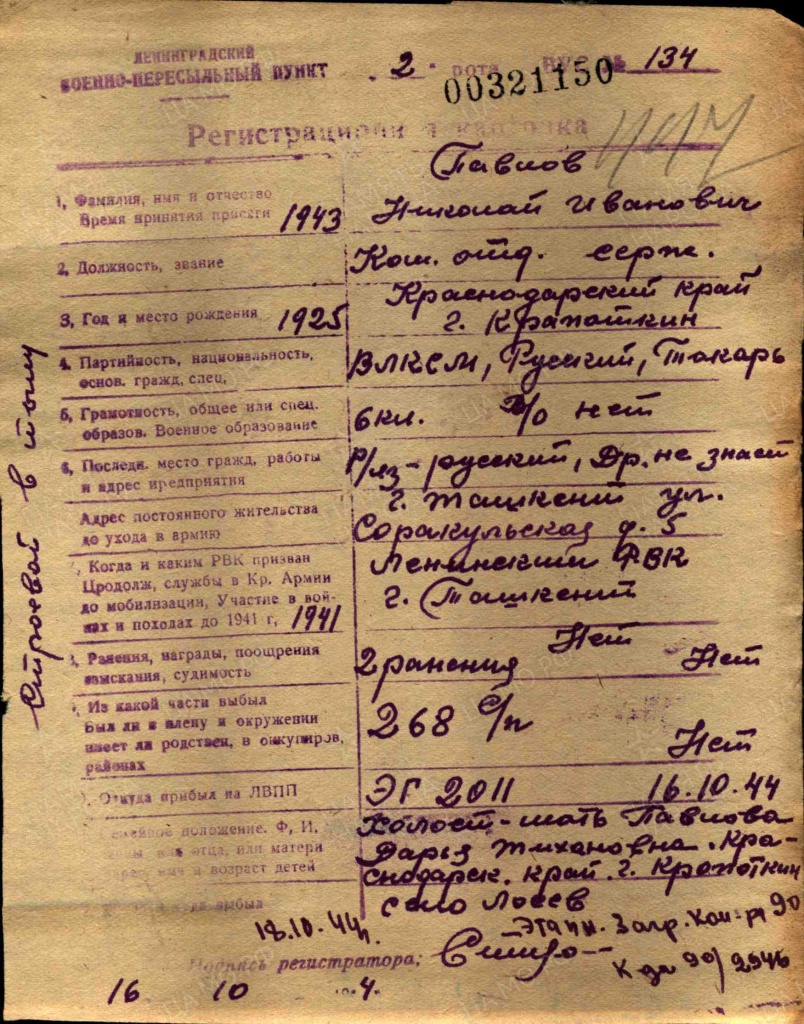 ЛЕНИНГРАДСКИЙ
ВОЕННО-ПЕРЕСЫЛЬНЫЙ ПУНКТ
2 рота ВУС № 134
00321150
Регистрационная карточка
Павлов
1, Фамилия, имя и отчество
Время принятия присяги 1943 Николай Иванович
2, Должность, звание Ком. отд. серж.
Краснодарский край
3, Год и место рождения 1925 г. Крапоткин
4. Партийность, национальность,
основ. гражд. спец, ВЛКСМ, Русский, Токарь
5, Грамотность, общее или спец.
образов. Военное образование 6 кл. в/о нет
6, Последн. место гражд, работы
и адрес предприятия Р/яз-русский, Др. не знает
Адрес постоянного жительства г. Ташкент ул.
до ухода в армию Соракульская д. 5
Когда и каким РВК призван Ленинский РВК
Продолж, службы в Кр. Армии
до мобилизации, Участие в вой- г. Ташкент
нах и походах до 1941 г, 1941
Нет
Ранения, награды, поощрения
взыскания, судимость 2 ранения Нет
Из какой части выбыл
Был ли в плену и окружении 268 с/п
имеет ли родствен, в оккупиров,
районах Нет
Откуда прибыл на ЛВПП ЭГ 2011 16.10.44
Семейное положение. Ф, И, Холост-мать Павлова
жены или отца, или матери Дарья Тихановна. Кра-
возраст детей снодарск. край. г. Крапоткин
выбыл село Лосев
18.10.44г.
Этапн. Загр. Ком-ра 90
Подпись регистратора:
16 10 4.
Строевой в тылу